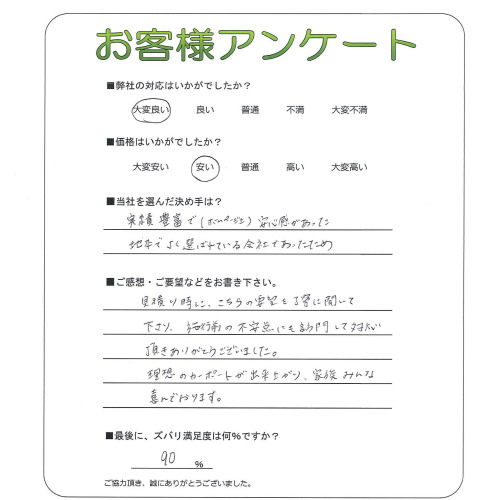 お客様アンケート
■弊社の対応はいかがでしたか？
大変良い 良い 普通 不満 大変不満
■価格はいかがでしたか？
大変安い 安い 普通 高い 大変高い
■当社を選んだ決め手は？
実績豊富で（ホームページ）安心感があった
地本でよく選ばれている会社であったため
■ご感想・ご要望などをお書き下さい。
見積り時に、こちらの要望を丁寧に聞いて
下さり、施行前の不安点にも訪問して対応
頂きありがとうございました。
理想のカーポートが出来上がり、家族みんな
喜んでおります。
■最後に、ズバリ満足度は何%ですか？
90 %
ご協力頂き、誠にありがとうございました。